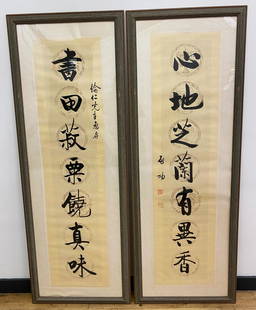 心地芝蘭有異香
启功
仁先生惠存
書田菽粟饒真味